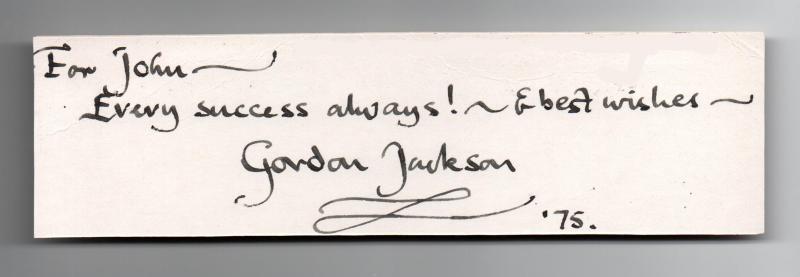 For John ~
Every success always! ~ & best wishes ~
Gordon Jackson
'75.